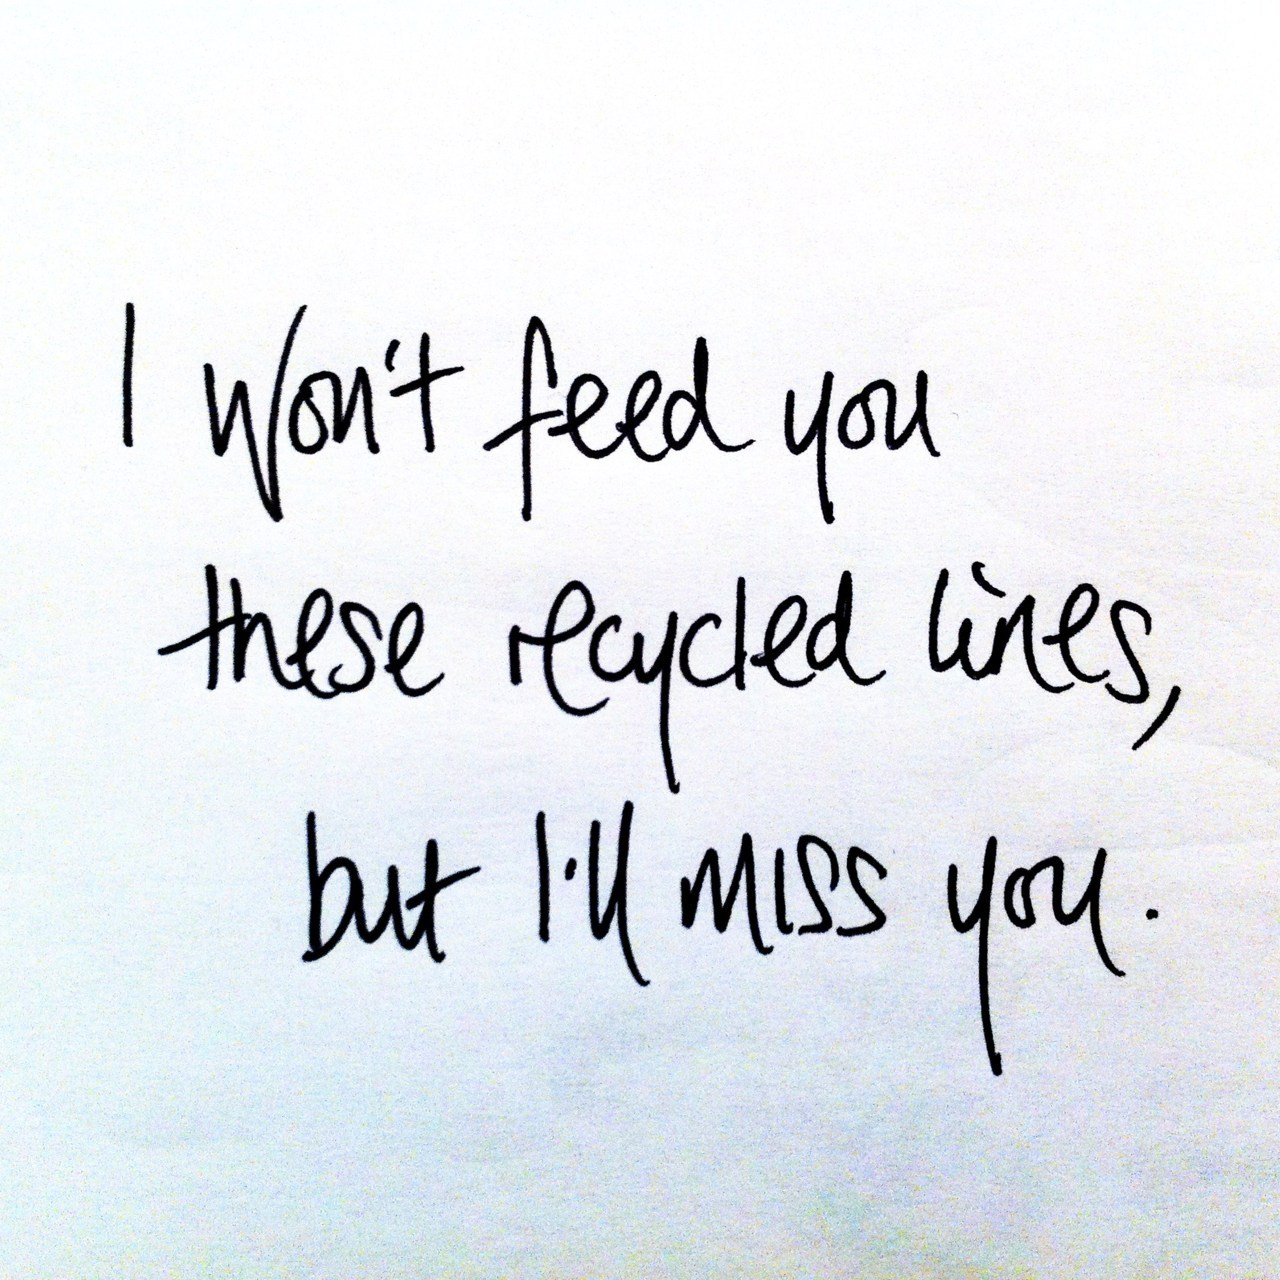 I won't feed you
these recycled lines,
but I'll miss you.